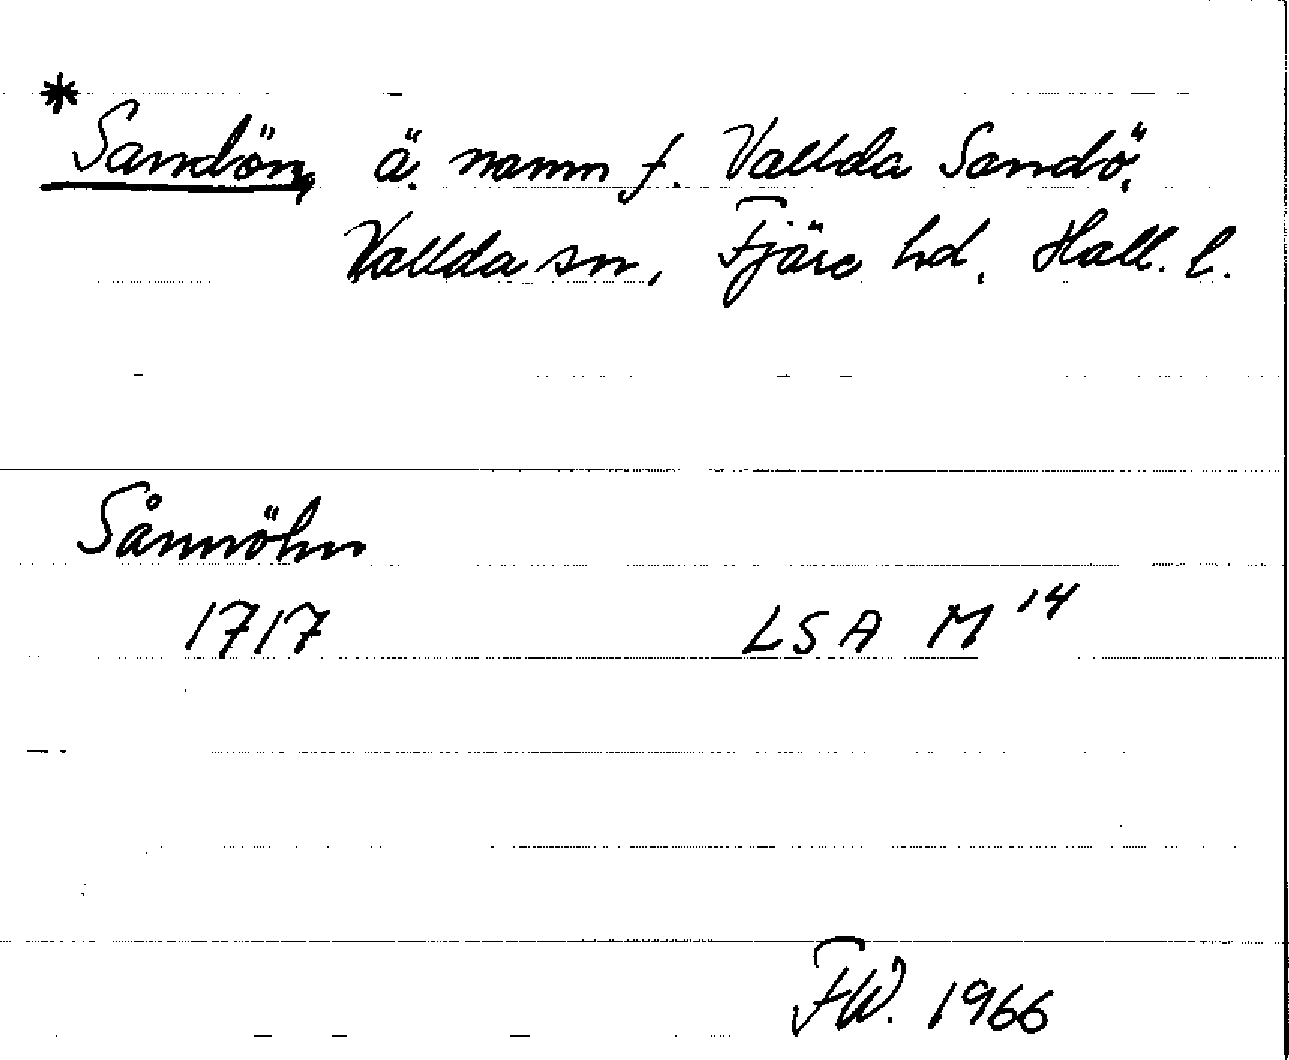 * Sandön, ä. namn f. Vallda Sandö,
Vallda sn, Fjäre hd, Hall. l.
Sånnöhn
1717 LSA M 14
FW. 1966